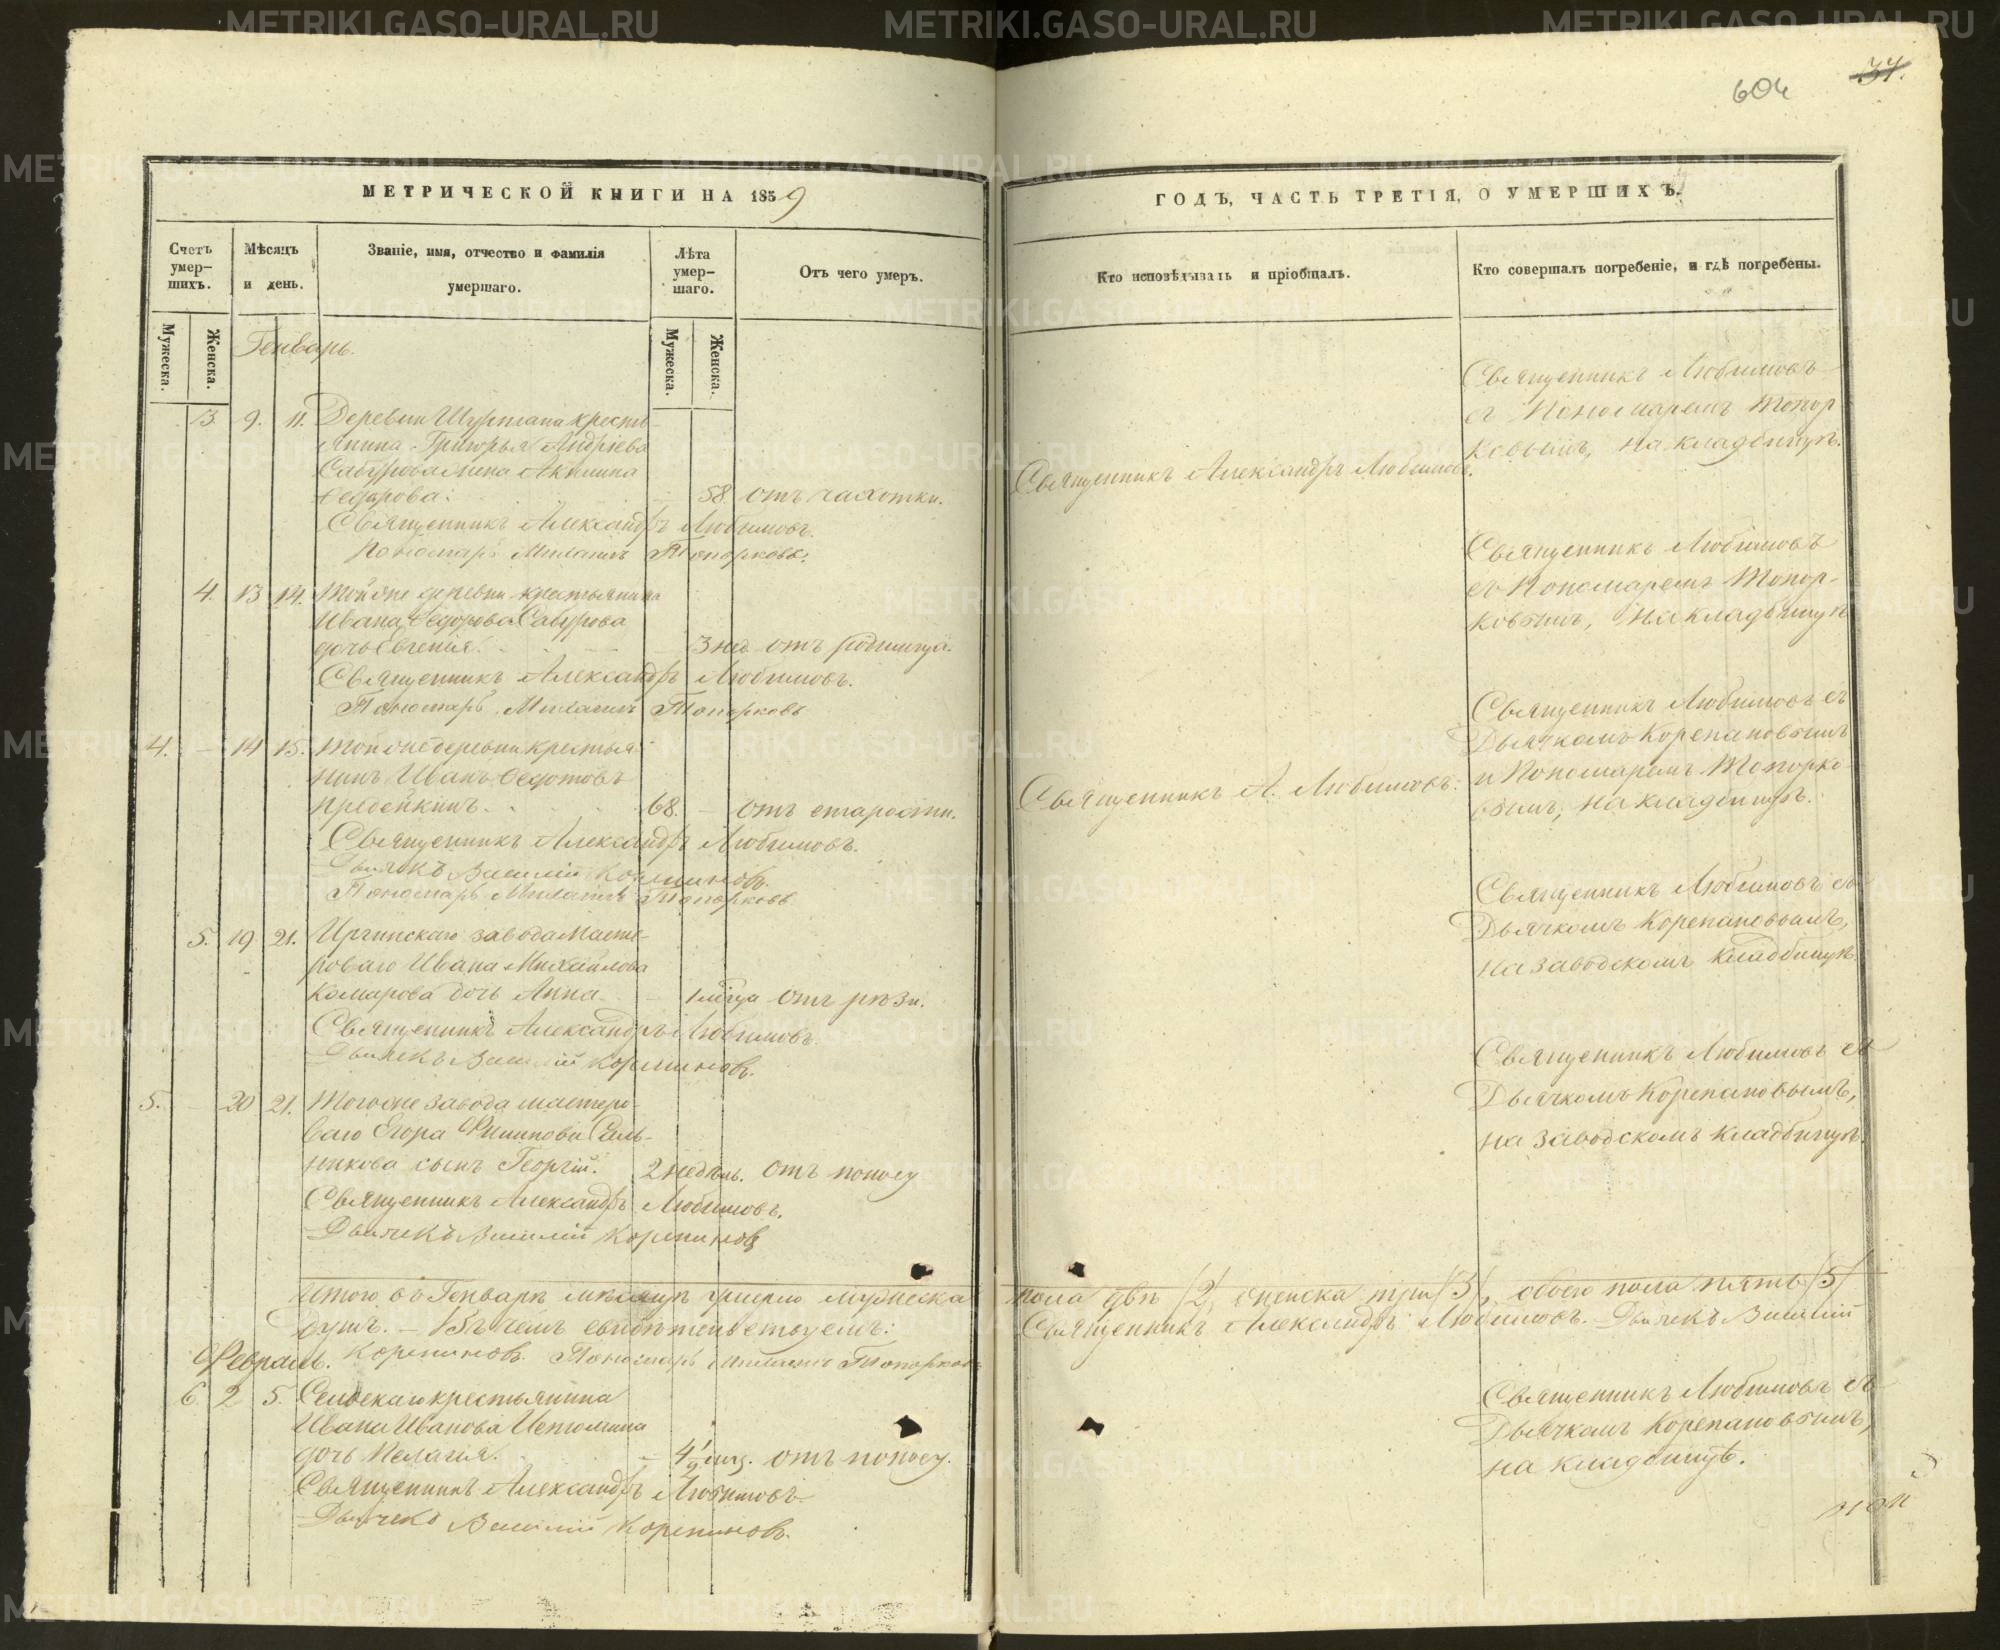 604
34.
МЕТРИЧЕСКОЙ КНИГИ НА 1859
Счетъ умер-шихъ.
Мѣсяцъ и день.
Званіе, имя, отчество и фамилія умершаго.
Лѣта умер-шаго.
Отъ чего умеръ.
Мужеска.
Женска.
Мужеска.
Женска.
Генварь.
3 9. 11. Деревни Шуртана кресть-
янина Григорья Андріева
Сабурова жена Акилина
Ѳедорова: 58 отъ чахотки.
Священникъ Александръ Любимовъ.
Пономарь Топорковъ.
4. 13 14. Той же деревни крестьянина
Ивана Ѳедорова Сабурова
дочь Евгенія. 3 нед. отъ родимца.
Священникъ Александръ Любимовъ.
Пономарь Топорковъ
4. - 14 15. Той же деревни крестья-
нинъ Иванъ Ѳедотовъ
68. - отъ старости.
Священникъ Александръ Любимовъ.
Дьячекъ Василій Корепановъ.
Пономарь Топорковъ
5. 19 21. Иргинскаго завода масте-
роваго Ивана Михайлова
Комарова дочь Анна - 1 мѣсца отъ рѣзи.
Священникъ Александръ Любимовъ.
Дьячекъ Василій Корепановъ.
5. - 20 21. Того же завода мастеро-
ваго Егора Филипова Сель-
никова сынъ Георгій. 2 недѣль. отъ поносу
Священникъ Александръ Любимовъ.
Дьячекъ Василій Корепановъ
Итого въ Генварѣ мѣсяцѣ умерло мужеска
душъ. - Въ чемъ свидѣтельствуемъ:
Февраль. Корепановъ. Пономарь Топорковъ
6 2 5. Сельскаго крестьянина
Ивана Иванова
дочь Пелагія. - 4 1/2 мц. отъ поносу.
Священникъ Александръ Любимовъ
Дьячекъ Василій Корепановъ.
ГОДЪ, ЧАСТЬ ТРЕТІЯ, О УМЕРШИХЪ.
Кто исповѣдывалъ и пріобщалъ.
Кто совершалъ погребеніе, и гдѣ погребены.
Священникъ Любимовъ
съ Пономаремъ Топор
ковымъ, на кладбищѣ.
Священникъ Александръ Любимовъ.
Священникъ Любимовъ
съ Пономаремъ Топор-
ковымъ, на кладбищѣ
Священникъ Любимовъ съ
Дьячкомъ Корепановымъ
и Пономаремъ Топорко-
вымъ, на кладбищѣ.
Священникъ А. Любимовъ.
Священникъ Любимовъ съ
Дьячкомъ Корепановымъ,
на заводскомъ кладбищѣ.
Священникъ Любимовъ съ
Дьячкомъ Корепановымъ,
на заводскомъ кладбищѣ.
пола два /2/, женска три /3/, обоего пола пять /5/
Священникъ Александръ Любимовъ. Дьячекъ Василій
Священникъ Любимовъ съ
Дьячкомъ Корепановымъ,
на кладбищѣ.
METRIKI.GASO-URAL.RU